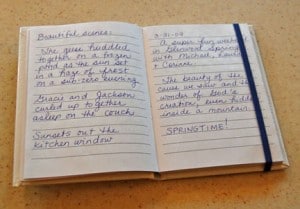 Beautiful scenes:
The geese huddled
together on a frozen
pond as the sun set
in a haze of frost
on a sub-zero evening.
Gracie and Jackson
curled up together
asleep on the couch
Sunsets out the
kitchen window
3-31-09
A super fun weekend
in Glenwood Springs
with Michael,
& Corinne.
The beauty of the
cave we saw and the
wonder of God's
creation, even hidden
inside a mountain.
SPRINGTIME!